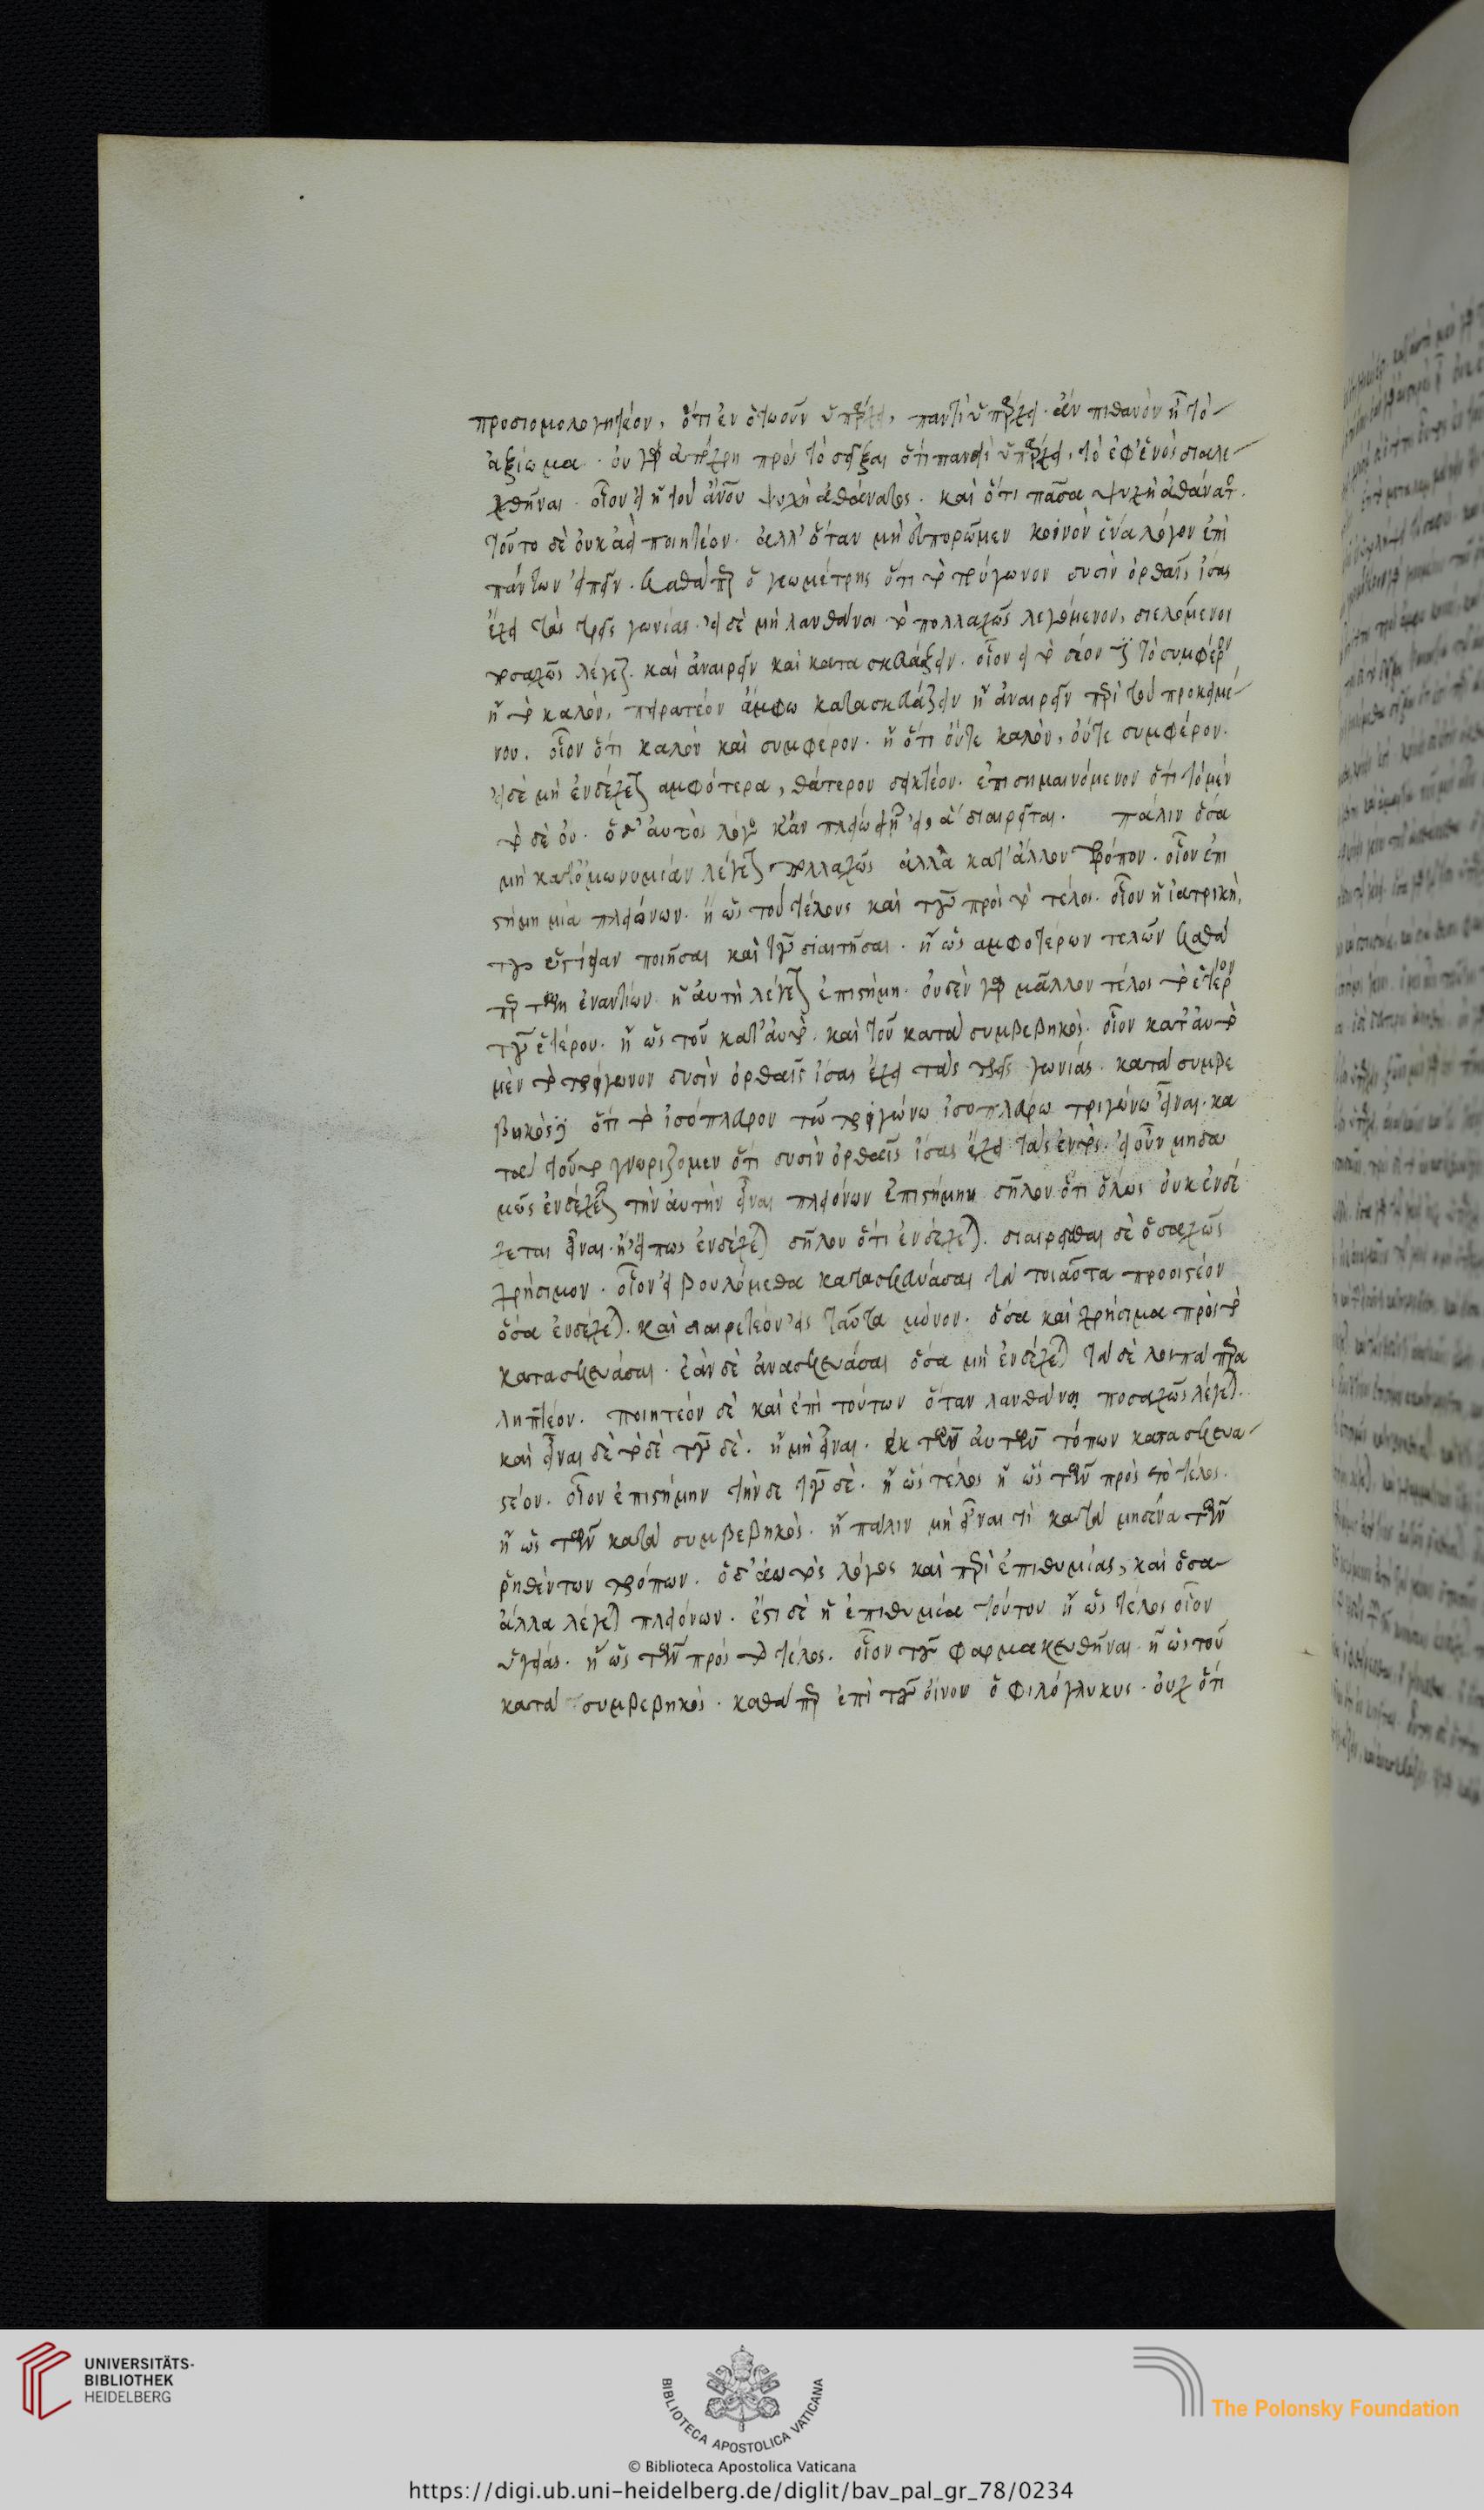 προσιομολογητέον, ὅτι ἐν ὁτωοῦν ὑπάρχει, παντὶ ὑπάρχει. ἐὰν πιθανὸν ᾖ τὸ
ἀξίωμα. οὐ γὰρ ἀπόχρη πρὸς τὸ δεῖξαι ὅτι παντὶ ὑπάρχει, τὸ ἐφ' ἑνὸς διαλε
χθῆναι. οἷον εἰ ἡ τοῦ ἀνου ψυχὴ ἀθάνατος. καὶ ὅτι πᾶσα ψυχὴ ἀθάνατος.
τοῦτο δὲ οὐκ ἀεὶ ποιητέον. ἀλλ' ὅταν μὴ εὐπορῶμεν κοινὸν ἕνα λόγον ἐπὶ
πάντων εἰπεῖν. καθάπερ ὁ γεωμέτρης ὅτι τὸ τρίγωνον δυσὶν ὀρθαῖς ἴσας
ἔχει τὰς τρεῖς γωνίας. εἰ δὲ μὴ λανθάνοι τὸ πολλαχῶς λεγόμενον, διελόμενοι
ποσαχῶς λέγεται. καὶ ἀναιρεῖν καὶ κατασκευάζειν. οἷον εἰ τὸ δέον ἐστὶ τὸ συμφέρον
ἢ τὸ καλόν, πειρατέον ἄμφω κατασκευάζειν ἢ ἀναιρεῖν περὶ τοῦ προκειμέ
νου. οἷον ὅτι καλὸν καὶ συμφερον. ἢ ὅτι οὔτε καλὸν, οὔτε συμφέρον.
εἰ δὲ μὴ ἐνδέχεται αμφότερα, θάτερον δεικτέον. ἐπισημαινόμενον ὅτι τὸ μὲν
τὸ δὲ οὐ. ὁ δ' αὐτὸς λόγος κἂν πλείω ᾖ εἰς ἃ διαιρεῖται. πάλιν ὅσα
μὴ καθ' ὁμωνυμίαν λέγεται πολλαχῶς ἀλλὰ κατ' ἄλλον τρόπον. οἷον ἐπι
στήμη μία πλειόνων. ἢ ὡς τοῦ τέλους καὶ τοῦ πρὸς τὸ τέλος. οἷον ἡ ἰατρικὴ,
τοῦ ὑγίειαν ποιῆσαι καὶ τοῦ διαιτῆσαι. ἢ ὡς αμφοτέρων τελῶν καθά
περ τῶν ἐναντίων ἡ αὐτὴ λέγεται ἐπιστήμη. οὐδὲν γὰρ μᾶλλον τέλος τὸ ἕτερον
τοῦ ἑτέρου. ἢ ὡς τοῦ κατ' αὐτὸ. καὶ τοῦ κατὰ συμβεβηκὸς. οἷον κατ' αὐτὸ
μὲν τὸ τρίγωνον δυσὶν ὀρθαῖς ἴσας ἔχει τὰς τρεῖς γωνίας. κατὰ συμβε
βηκὸς δὲ ὅτι τὸ ἰσόπλευρον τῶ τριγώνω ἰσοπλεύρω τριγώνω εἶναι. κα
τὰ τοῦτο γνωρίζομεν ὅτι δυσὶν ὀρθαῖς ἴσας ἔχει τὰς ἐντὸς. εἰ οὖν μηδα
μῶς ἐνδέχεται τὴν αὐτὴν εἶναι πλειόνων ἐπιστήμην δῆλον ὅτι ὅλως οὐκ ἐνδέ
χεται εἶναι. ἢ εἴ πως ἐνδέχεται δῆλον ὅτι ἐνδέχεται. διαιρεῖσθαι δὲ ὁσαχῶς
χρήσιμον. οἷον εἰ βουλόμεθα κατασκευάσαι τὰ τοιαῦτα προοιστέον
ὅσα ἐνδέχεται. καὶ διαιρετέον εἰς ταῦτα μόνον. ὅσα καὶ χρήσιμα πρὸς τὸ
κατασκευάσαι. ἐὰν δὲ ἀνασκευάσαι ὅσα μὴ ἐνδέχεται τὰ δὲ λοιπὰ παρα
ληπτέον. ποιητέον δὲ καὶ ἐπὶ τούτων ὅταν λανθάνοι ποσαχῶς λέγεται.
καὶ εἶναι δὲ τόδε τοῦ δὲ. ἢ μὴ εἶναι. ἐκ τῶν αὐτῶν τόπων κατασκευα
στέον. οἷον ἐπιστήμην τήνδε τοῦδε. ἢ ὡς τέλος ἢ ὡς τῶν πρὸς τὸ τέλος.
ἢ ὡς τῶν κατὰ συμβεβηκὸς. ἢ πάλιν μὴ εἶναι τὶ κατὰ μηδένα τῶν
ῥηθέντων τρόπων. ὁ δ' αὐτὸς λόγος καὶ περὶ ἐπιθυμίας, καὶ ὅσα
ἄλλα λέγεται πλειόνων. ἔστι δὲ ἡ ἐπιθυμία τούτου ἢ ὡς τέλος οἷον
ὑγείας. ἢ ὡς τῶν πρὸς τὸ τέλος. οἷον τοῦ φαρμακευθῆναι. ἢ ὡς τοῦ
κατὰ συμβεβηκὸς. καθάπερ ἐπὶ τοῦ οἴνου ὁ φιλόγλυκυς. οὐχ ὅτι
UNIVERSITÄTS-
BIBLIOTHEK
HEIDELBERG
BIBLIOTECA APOSTOLICA VATICANA
The Polonsky Foundation
© Biblioteca Apostolica Vaticana
https://digi.ub.uni-heidelberg.de/diglit/bav_pal_gr_78/0234